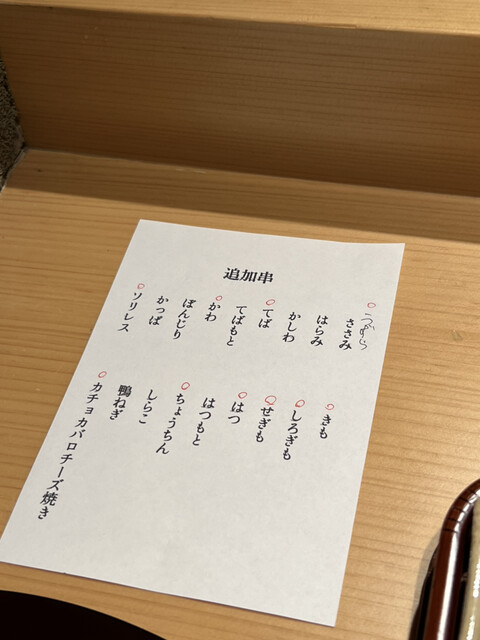 追加串
うずら
ささみ
はらみ
かしわ
てば
てばもと
かわ
ぼんじり
かっぱ
ソリレス
きも
しろぎも
せぎも
はつ
はつもと
ちょうちん
しらこ
鴨ねぎ
カチョカバロチーズ焼き